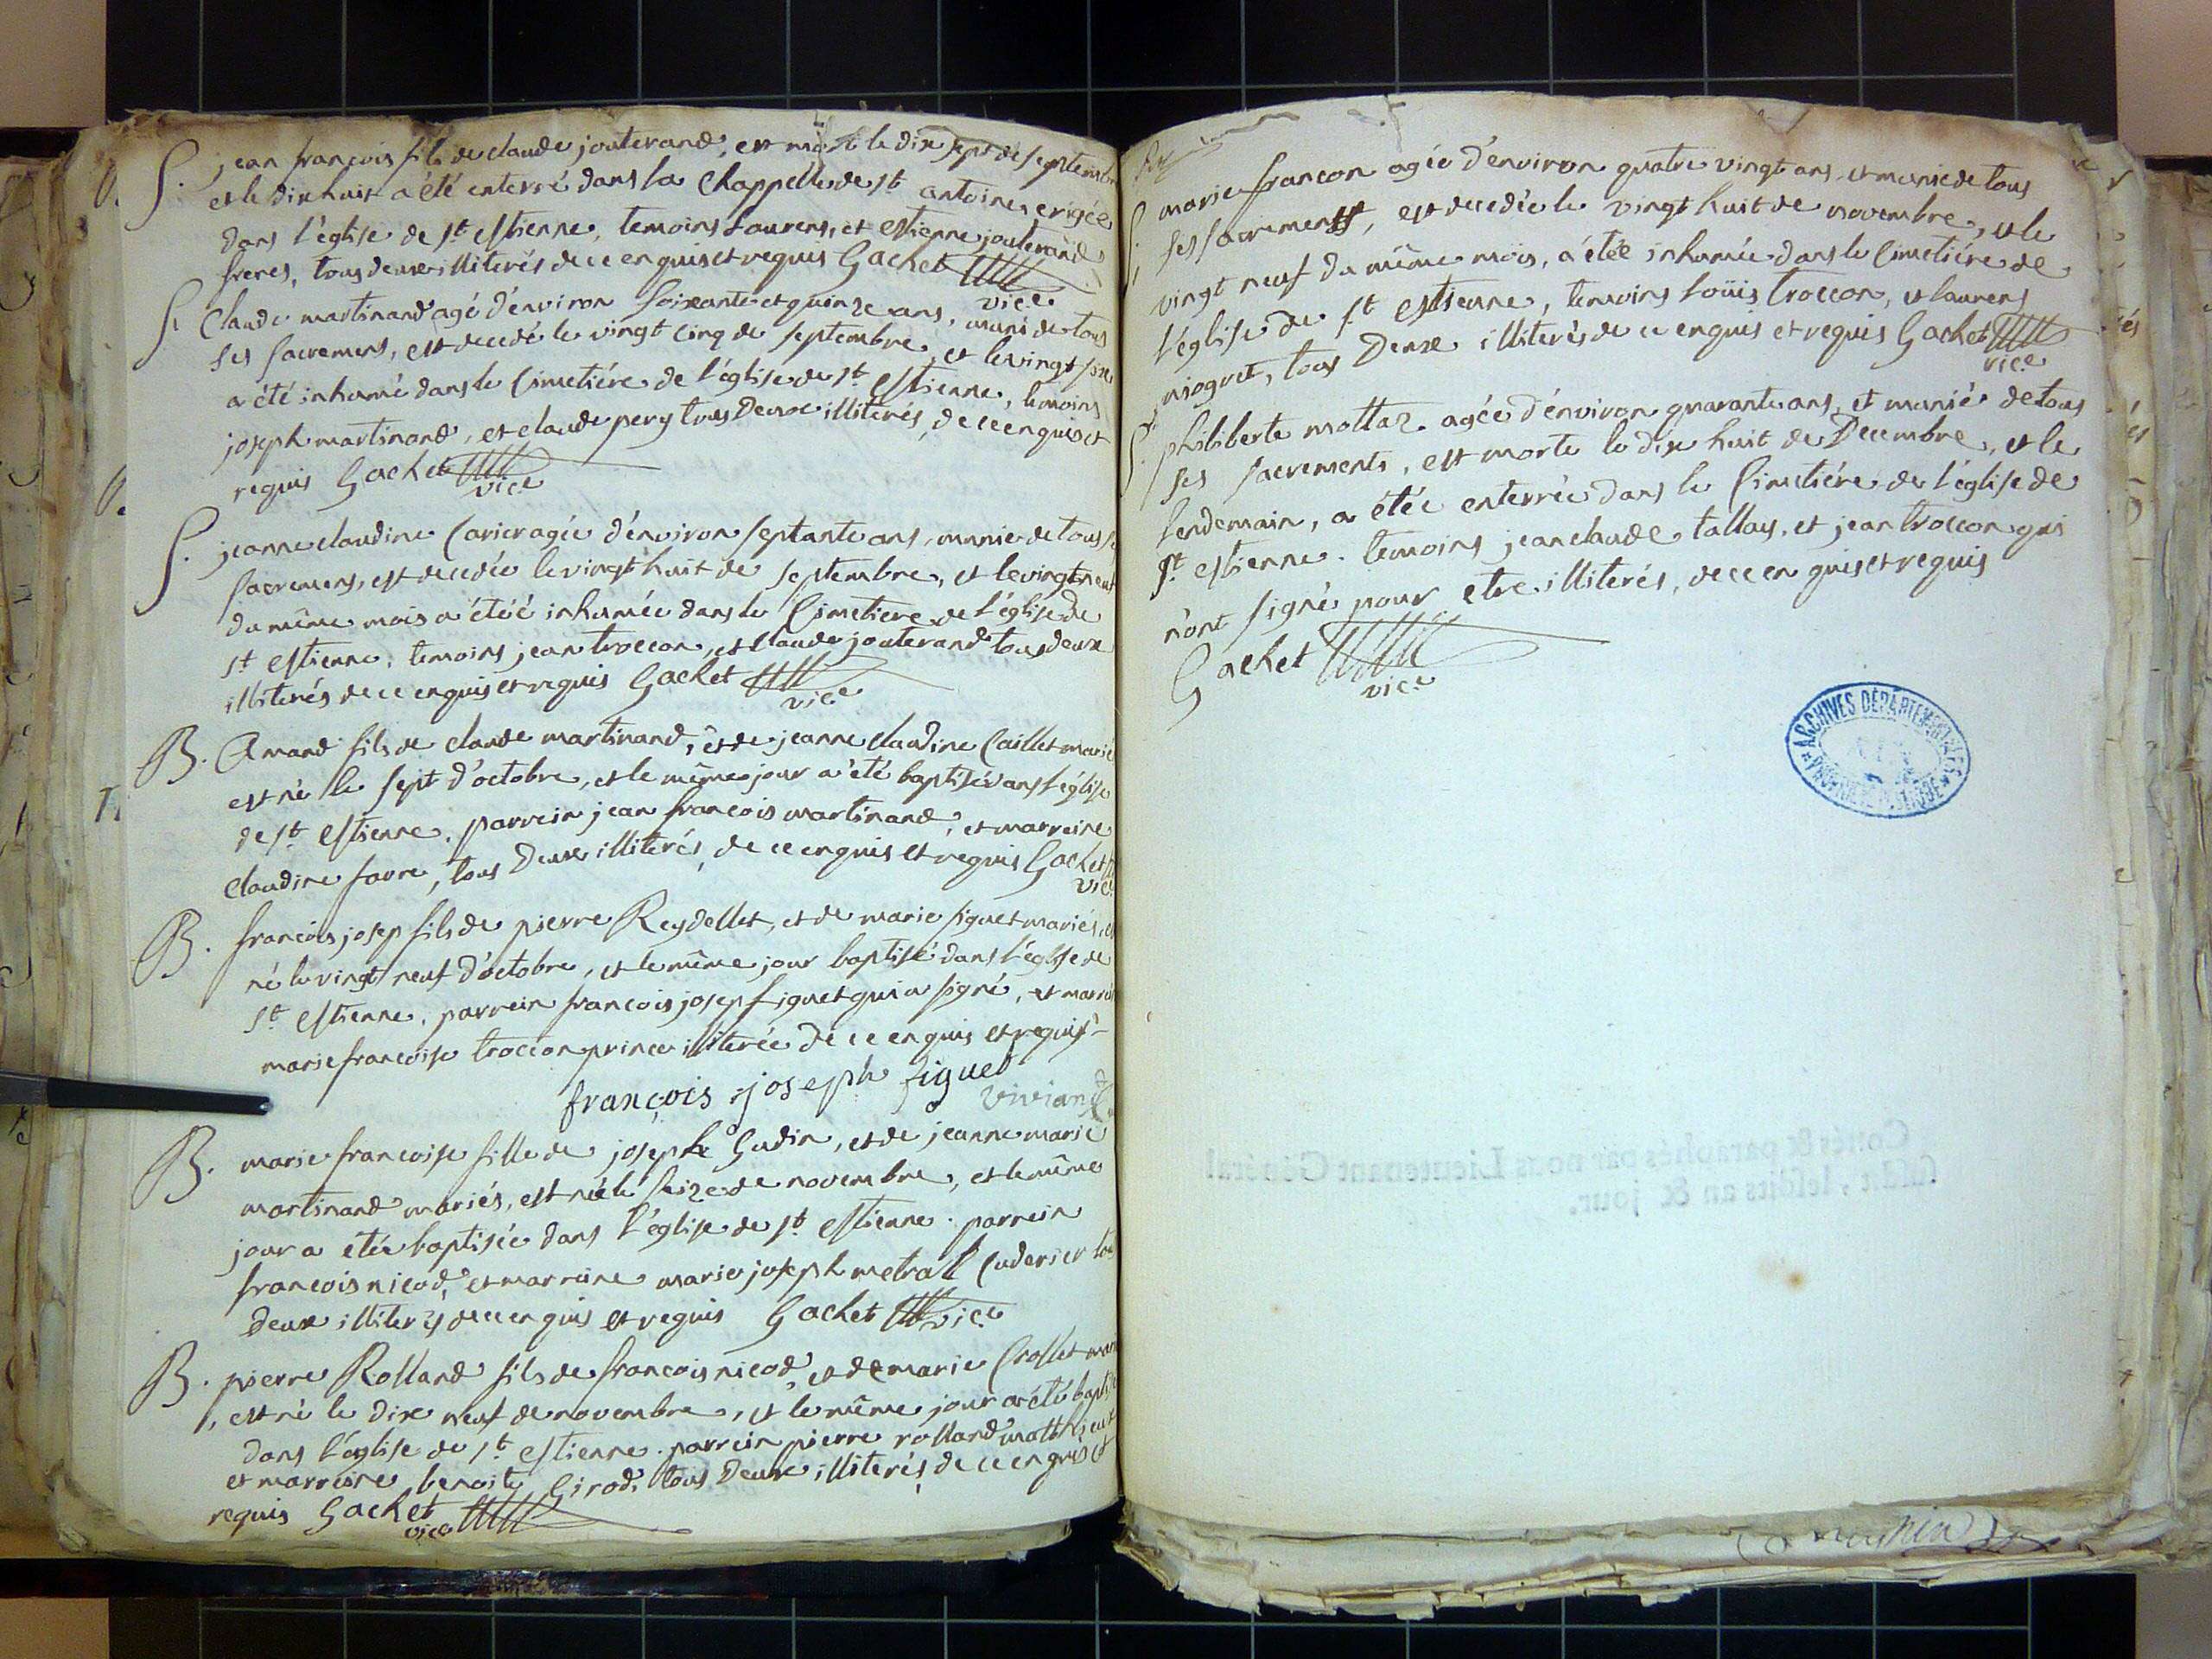 S. jean francois fils de claude jouterand, est mort le dix sept de septembre
et le dix huit a été enterré dans la Chappelle de st antoine, erigée
dans l'église de st estienne, temoins Laurens, et estienne jouterand
freres, tous deux illiterés de ce enquis et requis Gachet
vice
S. Claude martinand agé d'environ soixante et quinze ans, muni de tous
ses sacremens, est decedé le vingt cinq de septembre, et le vingt six
a été inhumé dans le Cimetiére de l'église de st estienne, temoins
joseph martinand, et claude pery tous deux illiterés, de ce enquis et
requis Gachet
vice
S. jeanne claudine Carier agée d'environ septante ans, munie de tous
sacremens, est decedée le vingt huit de septembre, et le vingt neuf
du même mois a étéé inhumée dans le Cimetiere de l'église de
st estienne, temoins jean troccon, et Claude jouterand tous deux
illiterés de ce enquis et requis Gachet
vice
B. Amand fils de claude martinand, et de jeanne claudine Caillet marié
est né le sept d'octobre, et le même jour a été baptisé dans l'église
de st estienne. parrein jean francois martinand, et marreine
claudine favre, tous deux illiterés, de ce enquis et requis Gachet
vice
B. francois josep fils de pierre Reydellet, et de marie figuet mariés, est
né le vingt neuf d'octobre, et le même jour baptisé dans l'église de
st estienne, parrein francois josep figuet qui a signé, et marrein
marie francoise troccon prince illiterée de ce enquis et requis
françois joseph figuet
Vivian
B. marie francoise fille de joseph Gudin, et de jeanne marie
martinand mariés, est née le seize de novembre, et le même
jour a étée baptisée dans l'église de st estienne. parrein
francois nicod, et marreine marie joseph metral Cuderier tous
deux illiterés de ce enquis et requis Gachet vice
B. pierre Rolland fils de francois nicod, et de marie Crollet mari
est né le dix neuf de novembre, et le même jour a été baptisé
dans l'église de st estienne. parrein pierre rolland matthieu
et marreine benoite Girod, tous deux illiterés, de ce enquis et
requis Gachet
vice
S. marie francon agée d'environ quatre vingt ans, et munie de tous
ses sacrements, est decedée le vingt huit de novembre, et le
vingt neuf du même mois, a étée inhumée dans le Cimetiére de
l'église de st estienne, temoins Loüis troccon, et laurens
nioguet, tous deux illiterés de ce enquis et requis Gachet
vice
S. philiberte mottaz agée d'environ quarante ans, et munié de tous
ses sacrements, est morte le dix huit de Decembre, et le
lendemain, a étée enterrée dans le Cimetiére de l'église de
st estienne. temoins jean claude tallay, et jean troccon qui
n'ont signé pour etre illiterés, de ce enquis et requis
Gachet
vice
ARCHIVES DÉPARTEMENTALES
Cottés & paraphés par nous Lieutenant Général
susdit, lesdits an & jour.